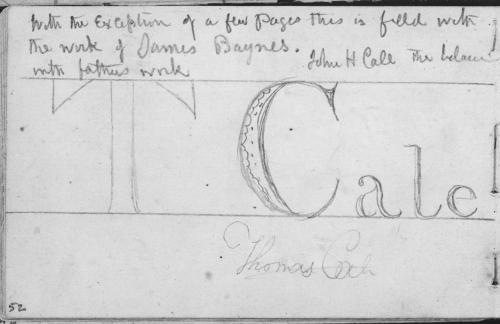 With the Exception of a few pages this is filled with
the work of James Baynes.
John H Cole The balance
with fathers work
T Cole
Thomas Cole
52